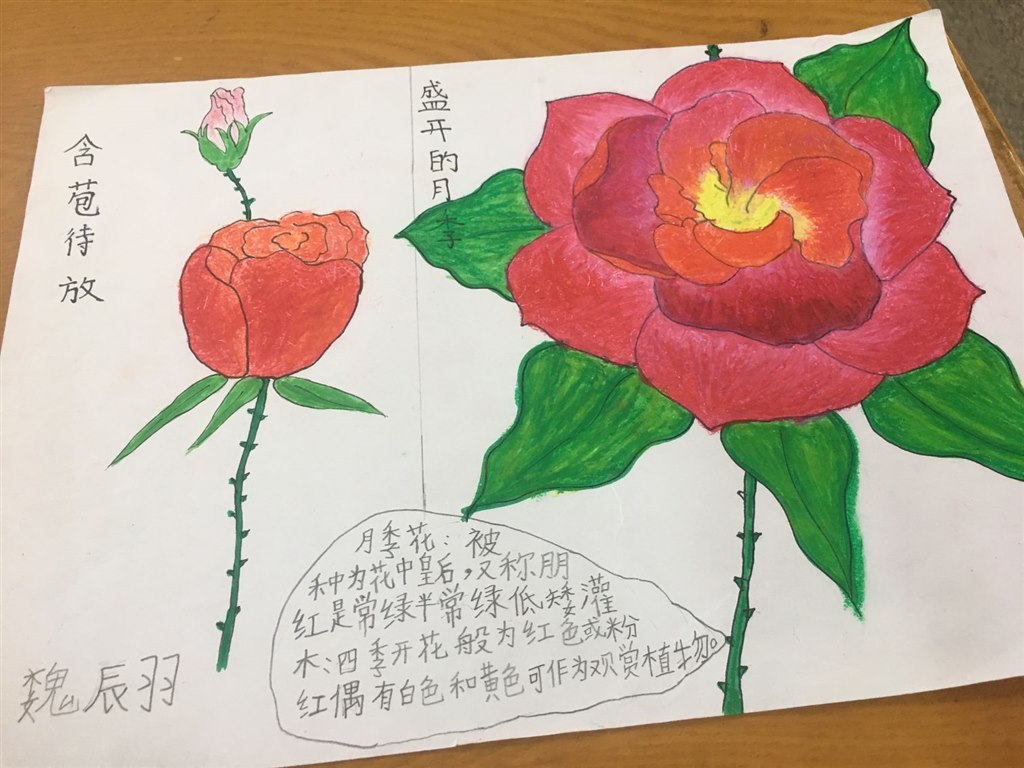 含苞待放
盛开的月季
月季花：被
称为花中皇后，又称朋
红是常绿半常绿低矮灌
木：四季开花般为红色或粉
红偶有白色和黄色可作为观赏植物。
魏辰羽